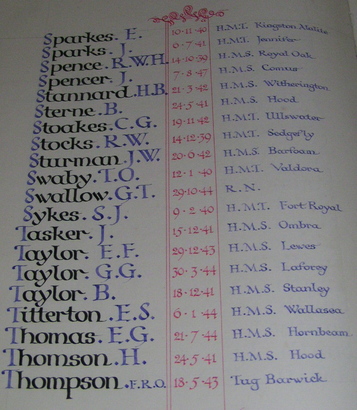 Sparkes. E. 10·11·40 H.M.T. Kingston Alalite
Sparks. J. 6·7·41 H.M.T. Jennifer
Spence. R.W.H. 14·10·39 H.M.S. Royal Oak
Spencer. J. 7·8·47 H.M.S. Comus
Stannard. H.B. 21·3·42 H.M.S. Witherington
Sterne. B. 24·5·41 H.M.S. Hood
Stoakes. C.G. 19·11·42 H.M.T. Ullswater
Stocks. R.W. 14·12·39 H.M.T. Sedgefly
Sturman. J.W. 20·6·42 H.M.S. Barfoam
Swaby. T.O. 12·1·40 H.M.T. Valdora
Swallow. G.T. 29·10·44 R.N.
Sykes. S.J. 9·2·40 H.M.T. Fort Royal
Tasker. J. 15·12·41 H.M.S. Ombra
Taylor. E.F. 29·12·43 H.M.S. Lewes
Taylor. G.G. 30·3·44 H.M.S. Laforey
Taylor. B. 18·12·41 H.M.S. Stanley
Titterton. E.S. 6·1·44 H.M.S. Wallasea
Thomas. E.G. 21·7·44 H.M.S. Hornbeam
Thomson. H. 24·5·41 H.M.S. Hood
Thompson. F.R.O. 18·5·43 Tug Barwick